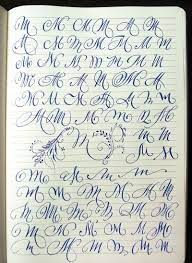 M M M M M M M
M M M M M M M
M M M M M M M
M M M M M M
M M M M M M M
M M M M M M M
M M M M
M M
M M
M M m m m
M M M M M M
M M M M M M M
M M M M M M M
M M M M M M